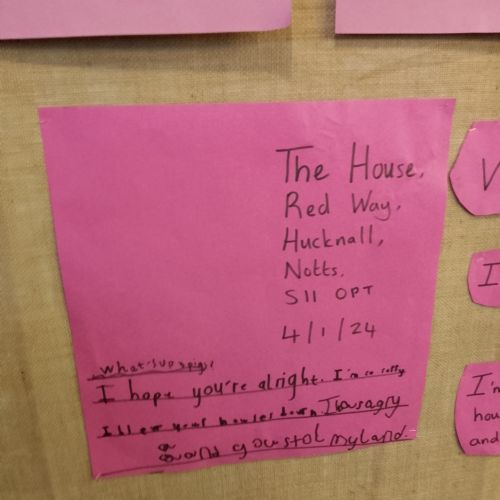 The House,
Red Way,
Hucknall,
Notts.
S11 OPT
4/1/24
What'sup pigs,
I hope you're alright. I'm so sorry
I blew your houses down I was agry
and you stol my land.
V
I
I'm
hou
and